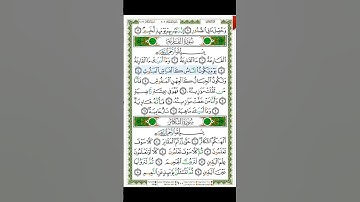 وَحُصِّلَ مَا فِي الصُّدُورِ ۝ إِنَّ رَبَّهُم بِهِمْ يَوْمَئِذٍ لَّخَبِيرٌ ۝
سُورَةُ الْقَارِعَةِ
بِسْمِ اللَّهِ الرَّحْمَٰنِ الرَّحِيمِ
الْقَارِعَةُ ۝ مَا الْقَارِعَةُ ۝ وَمَا أَدْرَاكَ مَا الْقَارِعَةُ ۝
يَوْمَ يَكُونُ النَّاسُ كَالْفَرَاشِ الْمَبْثُوثِ ۝
وَتَكُونُ الْجِبَالُ كَالْعِهْنِ الْمَنفُوشِ ۝ فَأَمَّا
مَن ثَقُلَتْ مَوَازِينُهُ ۝ فَهُوَ فِي عِيشَةٍ رَّاضِيَةٍ ۝
وَأَمَّا مَنْ خَفَّتْ مَوَازِينُهُ ۝ فَأُمُّهُ هَاوِيَةٌ ۝
وَمَا أَدْرَاكَ مَا هِيَهْ ۝ نَارٌ حَامِيَةٌ ۝
سُورَةُ التَّكَاثُرِ
بِسْمِ اللَّهِ الرَّحْمَٰنِ الرَّحِيمِ
أَلْهَاكُمُ التَّكَاثُرُ ۝ حَتَّىٰ زُرْتُمُ الْمَقَابِرَ ۝ كَلَّا سَوْفَ
تَعْلَمُونَ ۝ ثُمَّ كَلَّا سَوْفَ تَعْلَمُونَ ۝ كَلَّا لَوْ تَعْلَمُونَ
عِلْمَ الْيَقِينِ ۝ لَتَرَوُنَّ الْجَحِيمَ ۝ ثُمَّ لَتَرَوُنَّهَا
عَيْنَ الْيَقِينِ ۝ ثُمَّ لَتُسْأَلُنَّ يَوْمَئِذٍ عَنِ النَّعِيمِ ۝